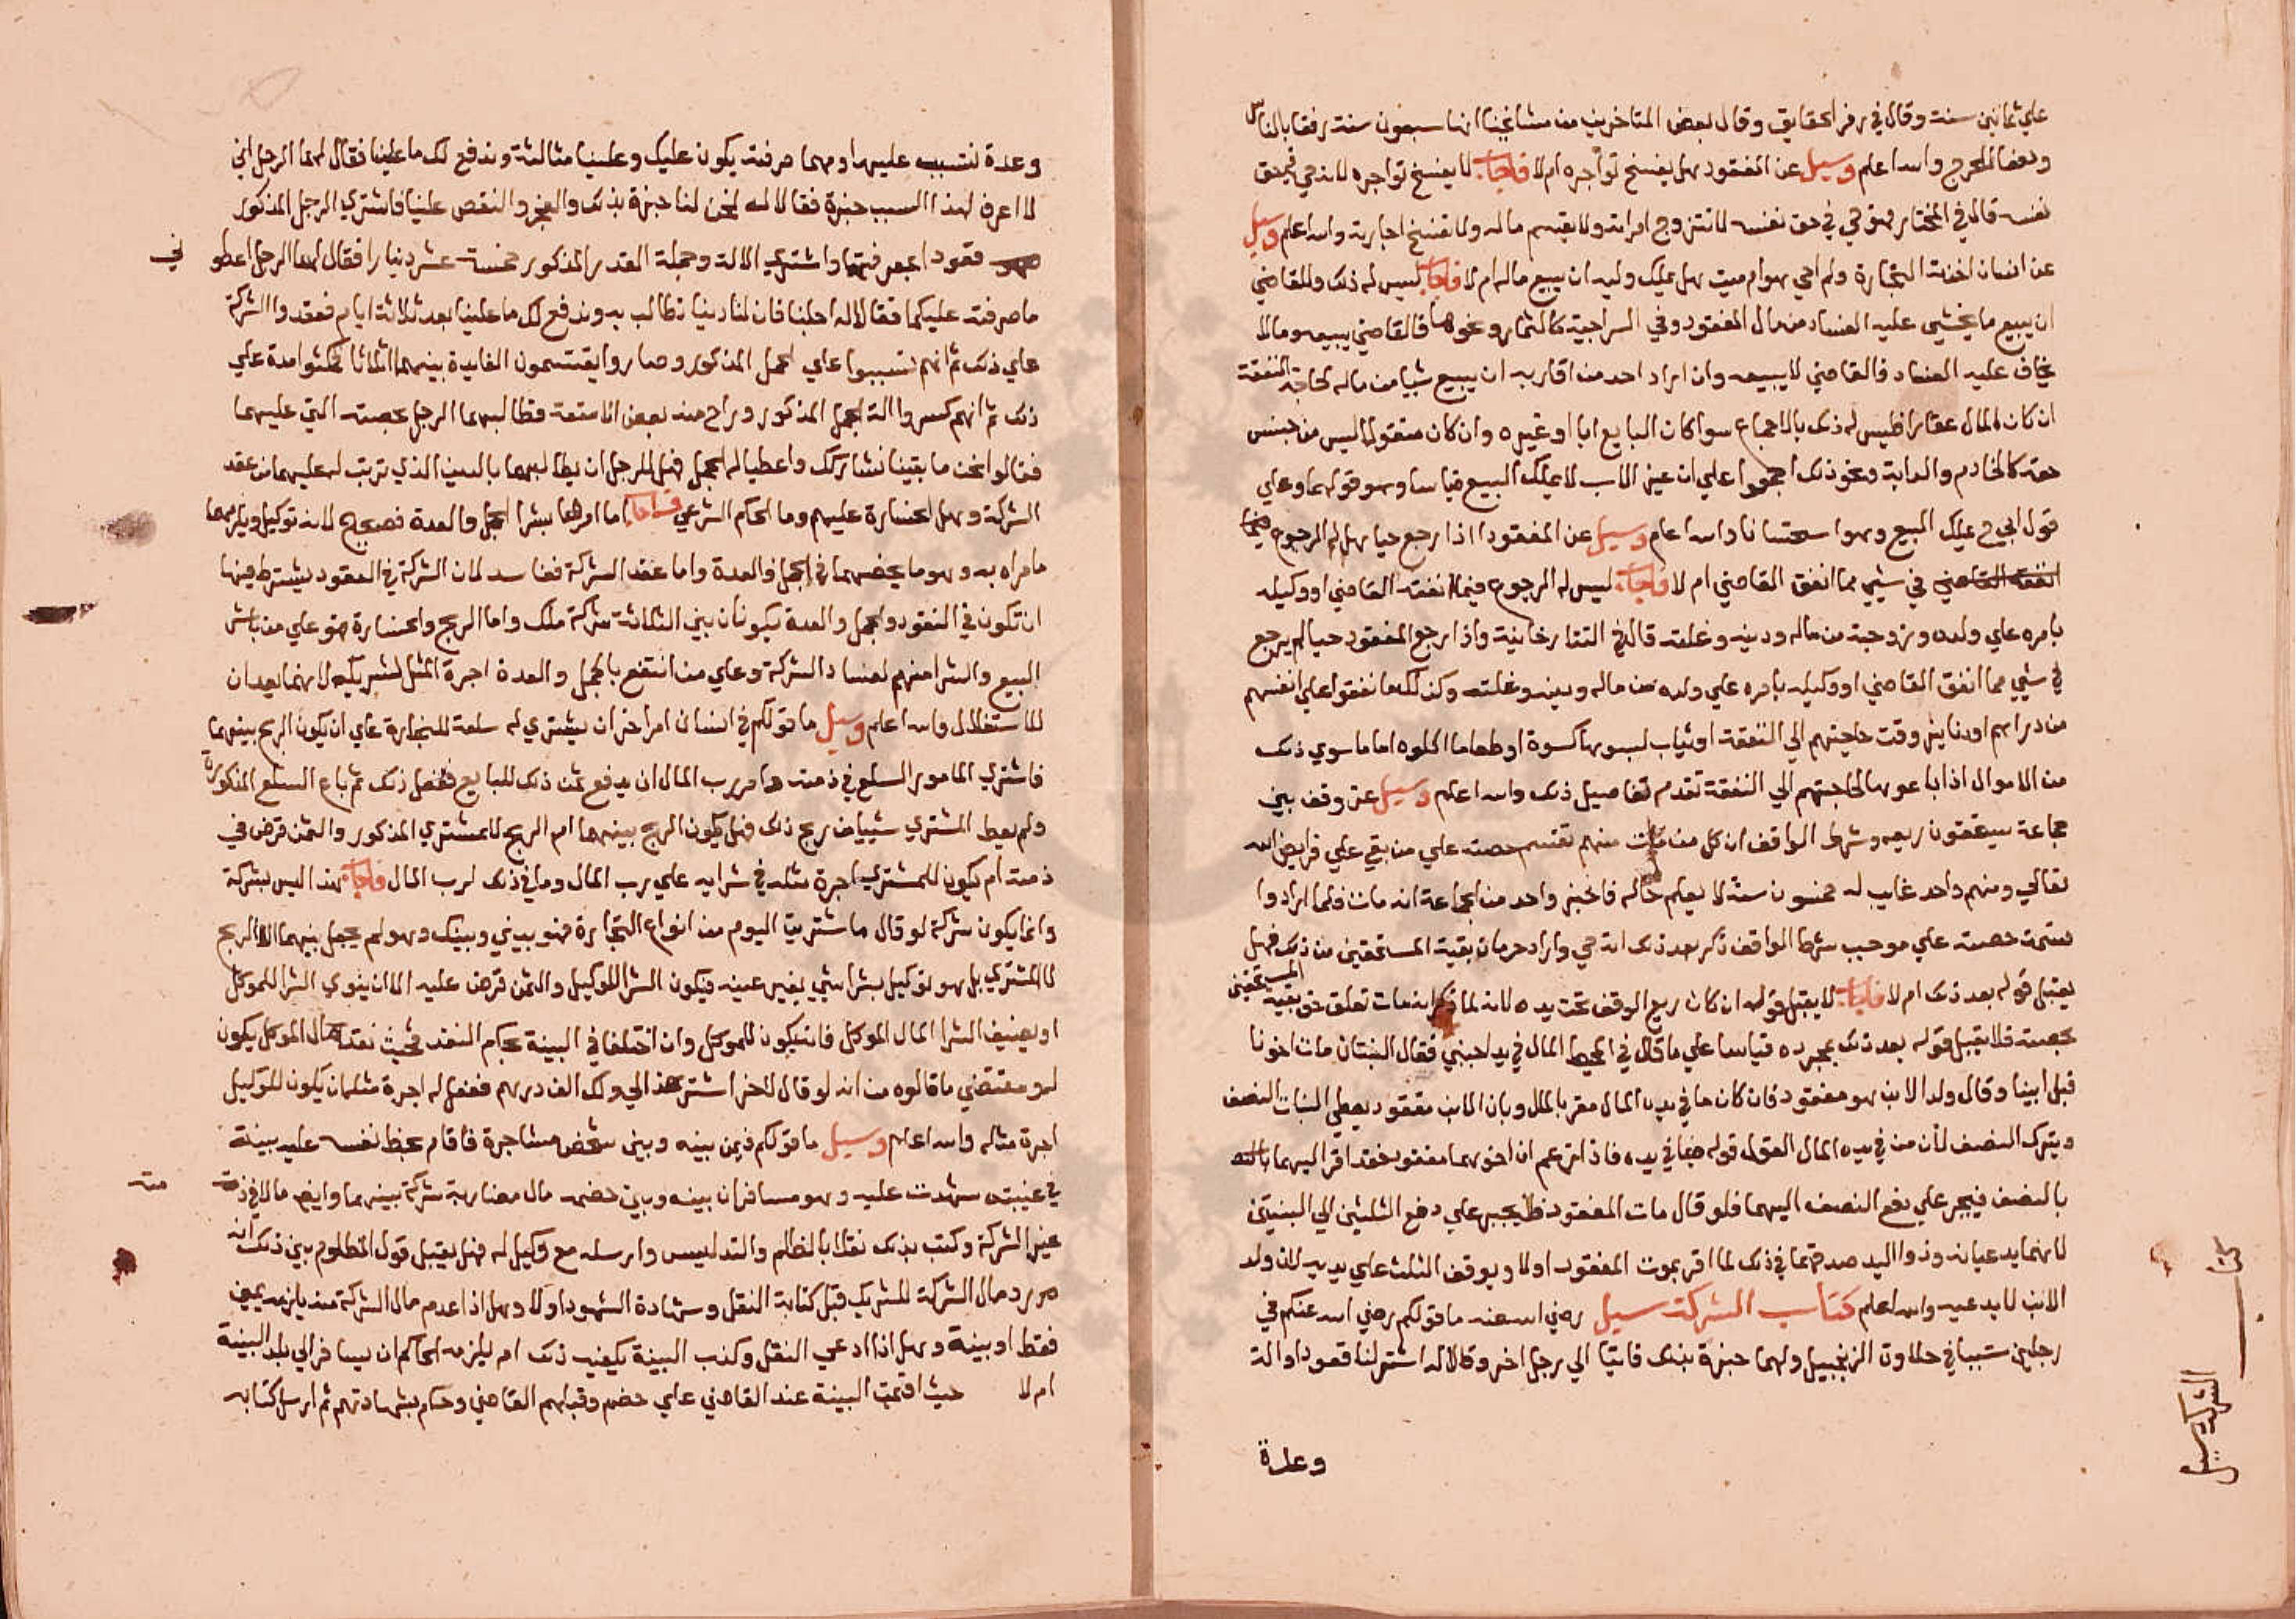 علي ثمانين سنة وقال في رمز الحقايق وقال بعض المتاخرين من مشايخنا انها سبعون سنة رفقا بالناس
ودفعا للحرج والله اعلم وسيل عن المفقود هل يفسخ تواجره ام لا فاجاب لا يفسخ تواجره لانه حي في حق
نفسه قال في المختار فهو حي في حق نفسه لا تتزوج امراته ولا يقسم ماله ولا تفسخ اجارته والله اعلم وسيل
عن انسان اخذته التجارة ولم احي هو ام ميت هل يملك وليه ان يبيع ماله ام لا فاجاب ليس له ذلك وللقاضي
ان يبيع ما يخشي عليه الفساد من مال المفقود وفي السراجية كالثمار ونحوها فالقاضي يبيعه ومالا
يخاف عليه الفساد فالقاضي لا يبيعه وان اراد احد من اقاربه ان يبيع شيا من ماله لحاجة النفقة
ان كان المال عقارا فليس له ذلك بالاجماع سوا كان البايع ابا او غيره وان كان منقولا ليس من جنس
حقه كالخادم والدابة ونحو ذلك اجمعوا علي ان غير الاب لا يملك البيع قياسا وهو قولهما وعلي
قول ابي ح يملك البيع وهو استحسانا والله اعلم وسيل عن المفقود اذا رجع حيا هل له الرجوع فيما
انفقه القاضي في شي مما انفق القاضي ام لا فاجاب ليس له الرجوع فيما انفقه القاضي او وكيله
بامره علي ولده وزوجته من ماله ودينه وغلته قال في التتارخانية واذا رجع المفقود حيا لم يرجع
في شي مما انفق القاضي او وكيله بامره علي ولده من ماله ودينه وغلته وكذلك ما نفقوا علي انفسهم
من دراهم او دنانير وقت حاجتهم الي النفقة او ثياب لبسوها كسوة او طعاما اكلوه اما ما سوي ذلك
من الاموال اذا باعوها لحاجتهم الي النفقة تقدم تفاصيل ذلك والله اعلم وسيل عن وقف بين
جماعة يستحقون ريعه وشرط الواقف ان كل من مات منهم تقسم حصته علي من بقي علي فرايض الله
تعالي ومنهم واحد غايب له خمسون سنة لا يعلم حاله فاخبر واحد من الجماعة انه مات فلما ارادوا
قسمت حصته علي موجب شرط الواقف ذكر بعد ذلك انه حي واراد حرمان بقية المستحقين من ذلك فهل
يقبل قوله بعد ذلك ام لا فاجاب لا يقبل قوله ان كان ريع الوقف تحت يده لانه لما ذكر انه مات تعلق حق بقية المستحقين
بحصته فلا يقبل قوله بعد ذلك بمجرده قياسا علي ما قال في المحيط المال في يد اجنبي فقال البنتان مات اخونا
قبل ابينا وقال ولد الابن هو مفقود فان كان ما في يده المال مقر بالمال وبان الابن مفقود يعطي البنات النصف
ويترك النصف لان من في يده المال القول قوله فيما في يده فاذا زعم ان اخوهما مفقود فقد اقر اليهما بالثلثه
بالنصف فيجبر علي دفع النصف اليهما فلو قال مات المفقود فلا يجبر علي دفع الثلثين الي البنتين
لانهما يدعيانه وذو اليد صدقهما في ذلك لما اقر بموت المفقود اولا ويوقف الثلث علي يديه لان ولد
الابن لا يدعيه والله اعلم كتاب الشركة سيل رضي الله عنه ما قولكم رضي الله عنكم في
رجلين تسببا في حلاوة الزنجبيل ولهما خبرة بذلك فاتيا الي رجل اخر وقالا له اشتر لنا قعود او الة
وعدة
الشركة سيل
وعدة نتسبب عليها ومهما صرفته يكون عليك وعلينا مثالثة وندفع لك ما علينا فقال لهما الرجل اني
لا اعرف لهذا السبب خبرة فقالا له نحن لنا خبرة بذلك والعجز والنقص علينا فاشتري الرجل المذكور
قعود بمعرفتهما واشتري الالة وجملة القدر المذكور خمسة عشر دينارا فقال لهما الرجل اعطوني
ما صرفته عليكما فقالا له احلنا فان لنا دينا نطالب به وندفع لك ما علينا بعد ثلاثة ايام فعقدوا الشركة
علي ذلك ثم انهم تسببوا علي الجمل المذكور وصاروا يقتسمون الفايدة بينهما اثلاثا مكثوا مدة علي
ذلك ثم انهم كسروا الة الجمل المذكور وراح منه بعض الامتعة فطالبهما الرجل بحصته التي عليهما
فقالوا نحن ما بقينا نشاركك واعطيا له الجمل فهل للرجل ان يطالبهما بالدين الذي ترتب له عليهما من عقد
الشركة وهل الخسارة عليهم وما الحكم الشرعي فاجاب اما امرهما بشرا الجمل والعدة فصحيح لانه توكيل ويلزمهما
ما مراه به وهو ما يخصهما في الجمل والعدة واما عقد الشركة ففاسد لان الشركة في العقود يشترط فيها
ان تكون في النقود والجمل والعدة يكونان بين الثلاثة شركة ملك واما الربح والخسارة فهو علي من باشر
البيع والشرا منهم لفساد الشركة وعلي من انتفع بالجمل والعدة اجرة المثل لشريكه لانهما يعدان
للاستغلال والله اعلم وسيل ما قولكم في انسان امر اخر ان يشتري له سلعة للتجارة علي ان يكون الربح بينهما
فاشتري المامور السلع في ذمته وامر رب المال ان يدفع ثمن ذلك للبايع ففعل ذلك ثم باع السلع المذكورة
ولم يعط المشتري شييا من ربح ذلك فهل يكون الربح بينهما ام الربح للمشتري المذكور والثمن قرض في
ذمته ام يكون للمشتري اجرة مثله في شرايه علي رب المال وما في ذلك لرب المال فاجاب هذا ليس بشركة
وانما يكون شركة لو قال ما شتريت اليوم من انواع التجارة فهو بيني وبينك وهو لم يجعل بينهما الا الربح
لا المشتري بل هو توكيل بشرا شي بغير عينه فيكون الشرا للوكيل والثمن قرض عليه الا ان ينوي الشرا للموكل
او يضيف الشرا لمال الموكل فانه يكون للموكل وان اختلفا في النية يحكم النقد فحيث نقد مال الموكل يكون
له ومقتضي ما قالوه من انه لو قال لاخر اشتر هذا لي ولك الف درهم ففعل له اجرة مثله ان يكون للوكيل
اجرة مثله والله اعلم وسيل ما قولكم فيمن بينه وبين شخص مشاجرة فاقام بخط نفسه عليه بينة
في غيبته شهدت عليه وهو مسافر ان بينه وبين خصمه مال مضاربة شركة بينهما وايضا مالا في ذمته
غير الشركة وكتب بذلك نقلا بالظلم والتدليس وارسله مع وكيل له فهل يقبل قول المظلوم بين ذلك انه
رد مال الشركة للشريك قبل كتابة النقل وشهادة الشهود اولا وهل اذا عدم مال الشركة منه يلزمه يمين
فقط او بينة وهل اذا ادعي النقل وكذب البينة يكفيه ذلك ام يلزمه الحاكم ان يسافر الي بلد البينة
ام لا حيث اقيمت البينة عند القاضي علي خصم وقبلهم القاضي وحكم بشهادتهم ثم ارسل كتابه